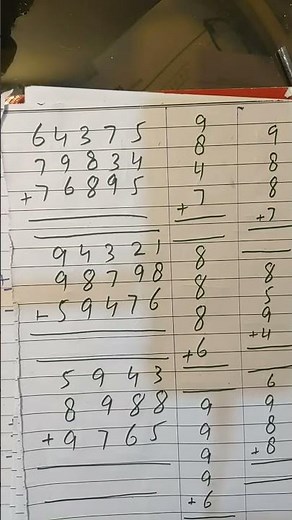 64375
79834
+76895
94321
98798
+59476
5943
8988
+9765
9
8
4
+7
8
8
8
+6
9
9
9
9
+6
9
8
8
+7
8
5
9
+4
6
9
8
+8